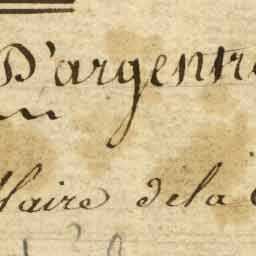 D'argentr
laire de la